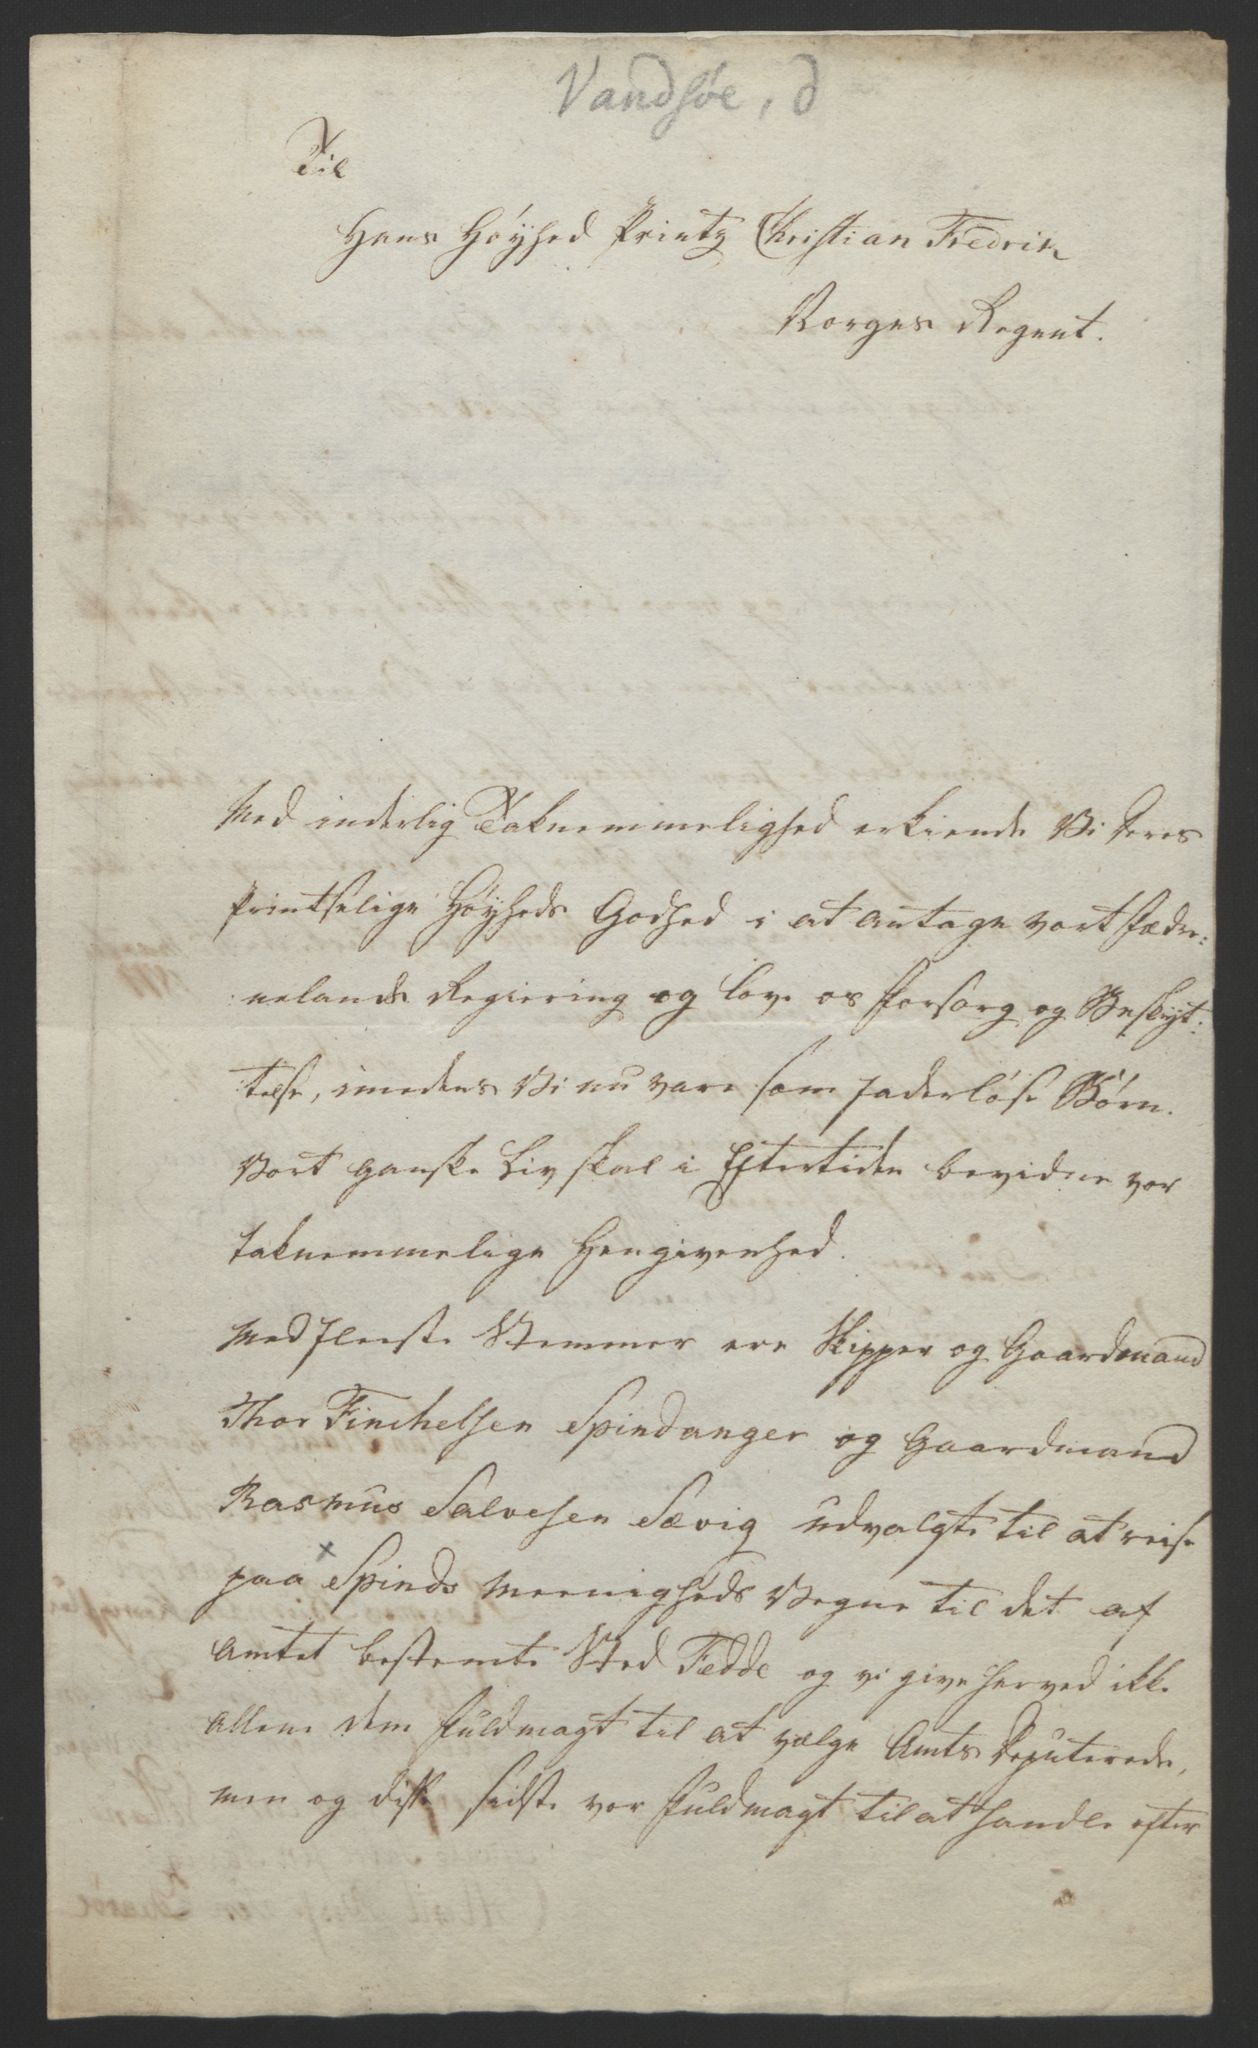 Vandsøe, d
Til
Hans Høyhed Printz Christian Fredrik
Norges Regent.
Med inderlig Taknemmelighed erkiende Vi Deres
Printselige Høyheds Godhed i at antage vort Fæder:
:nelands Regiering og love os Forsorg og Beskyt:
:telse, imedens Vi nu vare som faderløse Børn.
Vort ganske Liv skal i Eftertiden bevidne vor
taknemmelige Hengivenhed.
Med fleeste Stemmer ere Skipper og Gaardmand
Thor Finchelsen Spindanger og Gaardmand
Rasmus Salvesen Sævig udvalgte til at reise
paa Spinds Meenigheds Vegne til det af
Amtet bestemte Sted Fedde og vi give herved ikke
allene dem Fuldmagt til at vælge Amts Deputerede,
men og disse sidste vor Fuldmagt til at handle efter